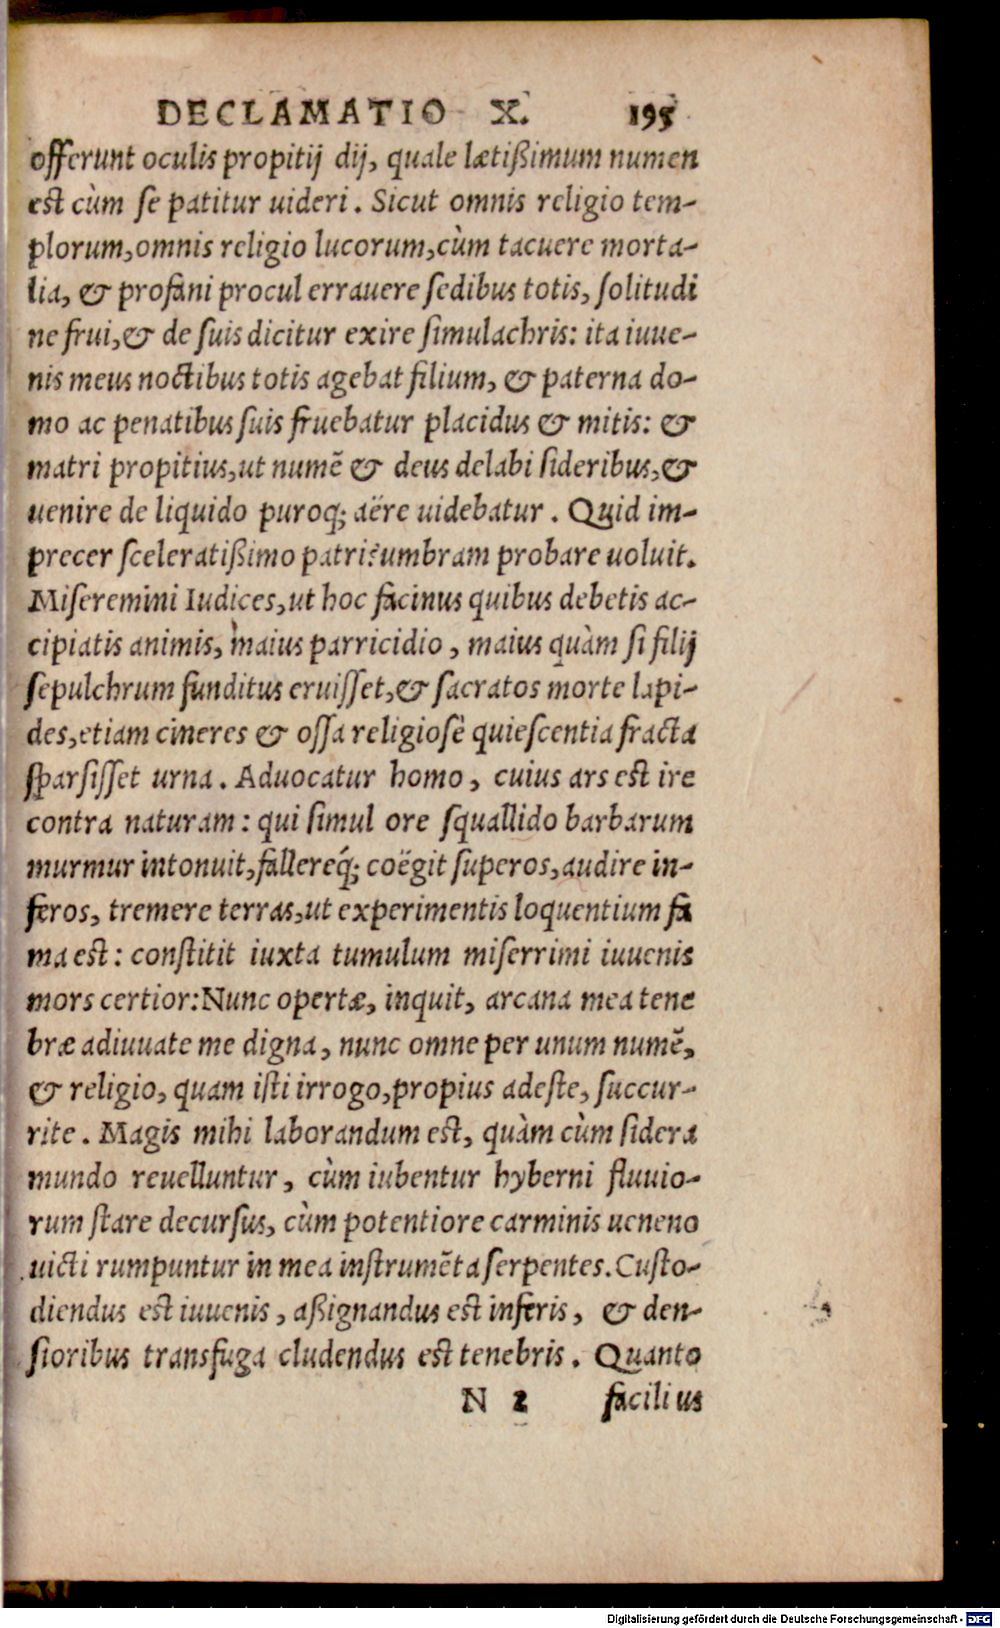 DECLAMATIO X. 195
offerunt oculis propitij dij, quale lætißimum numen
est cùm se patitur uideri. Sicut omnis religio tem-
plorum, omnis religio lucorum, cùm tacuere morta-
lia, & profani procul errauere sedibus totis, solitudi
ne frui, & de suis dicitur exire simulachris: ita iuue-
nis meus noctibus totis agebat filium, & paterna do-
mo ac penatibus suis fruebatur placidus & mitis: &
matri propitius, ut numẽ & deus delabi sideribus, &
uenire de liquido puroq; aëre uidebatur. Quid im-
precer sceleratißimo patri? umbram probare uoluit.
Miseremini Iudices, ut hoc facinus quibus debetis ac-
cipiatis animis, maius parricidio, maius quàm si filij
sepulchrum funditus eruisset, & sacratos morte lapi-
des, etiam cineres & ossa religiosè quiescentia fracta
sparsisset urna. Aduocatur homo, cuius ars est ire
contra naturam: qui simul ore squallido barbarum
murmur intonuit, fallereq́; coëgit superos, audire in-
feros, tremere terras, ut experimentis loquentium fa
ma est: constitit iuxta tumulum miserrimi iuuenis
mors certior: Nunc opertæ, inquit, arcana mea tene
bræ adiuuate me digna, nunc omne per unum numẽ,
& religio, quam isti irrogo, propius adeste, succur-
rite. Magis mihi laborandum est, quàm cùm sidera
mundo reuelluntur, cùm iubentur hyberni fluuio-
rum stare decursus, cùm potentiore carminis ueneno
uicti rumpuntur in mea instrumẽta serpentes. Custo-
diendus est iuuenis, aßignandus est inferis, & den-
sioribus transfuga cludendus est tenebris. Quanto
N 2 facilius
Digitalisierung gefördert durch die Deutsche Forschungsgemeinschaft - DFG